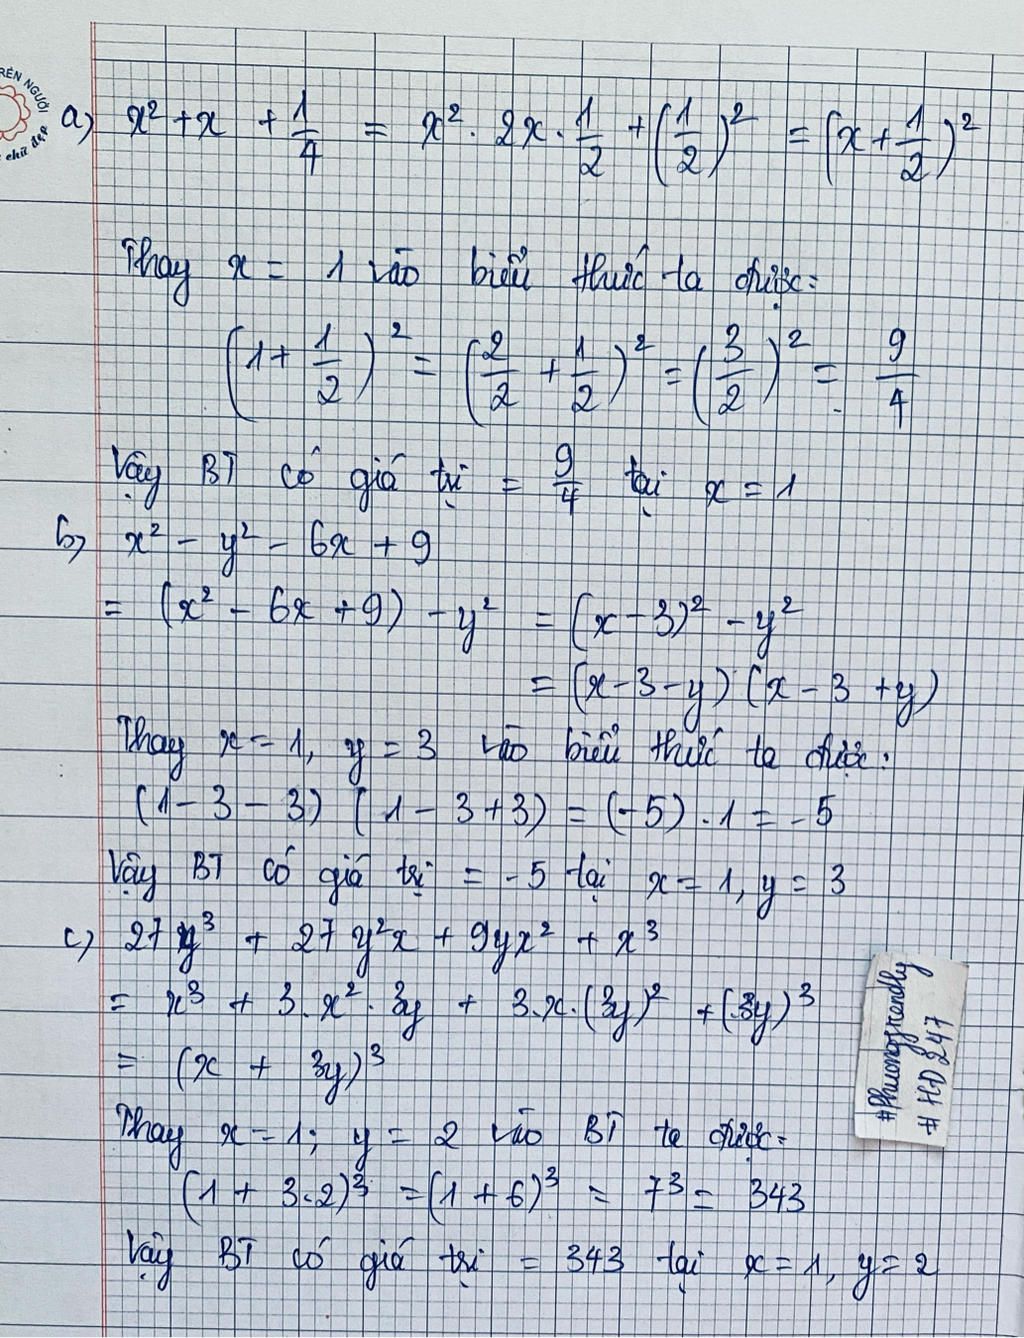 RÈN NGƯỜI
chữ đẹp
a) x² + x + 1/4 = x² . 2x . 1/2 + (1/2)² = (x + 1/2)²
Thay x = 1 vào biểu thức ta được:
(1 + 1/2)² = (2/2 + 1/2)² = (3/2)² = 9/4
Vậy BT có giá trị = 9/4 tại x = 1
b) x² - y² - 6x + 9
= (x² - 6x + 9) - y² = (x - 3)² - y²
= (x - 3 - y) (x - 3 + y)
Thay x = 1, y = 3 vào biểu thức ta được:
(1 - 3 - 3) (1 - 3 + 3) = (-5) . 1 = -5
Vậy BT có giá trị = -5 tại x = 1, y = 3
c) 27y³ + 27y²x + 9yx² + x³
= x³ + 3.x².3y + 3.x.(3y)² + (3y)³
= (x + 3y)³
Thay x = 1; y = 2 vào BT ta được:
(1 + 3.2)³ = (1 + 6)³ = 7³ = 343
Vậy BT có giá trị = 343 tại x = 1, y = 2
#Phuongfriendly
#HD247